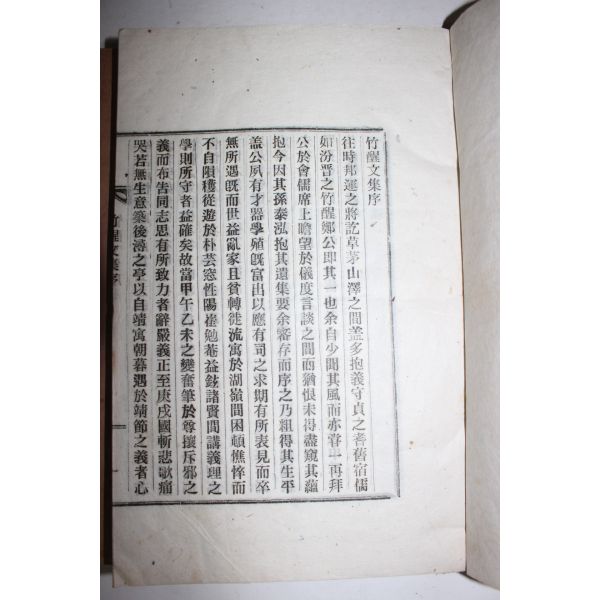 竹醒文集序
往時邦運之將訖草茅山澤之間盖多抱義守貞之耆舊宿儒
如汾晋之竹醒鄭公即其一也余自少聞其風而亦甞一再拜
公於會儒席上瞻望於儀度言談之間而猶恨未得盡窺其蘊
抱今因其孫泰泓抱其遺集要余審存而序之乃粗得其生平
盖公夙有才器學殖旣富出以應有司之求期有所表見而卒
無所遇旣而世益亂家且貧轉徙流寓於湖嶺間困頓憔悴而
不自隕穫從遊於朴芸窓性陽崔勉菴益鉉諸賢間講義理之
學則所守者益確矣故當甲午乙未之變奮筆於尊攘斥邪之
義而布告同志思有所致力者辭嚴義正至庚戌國斬悲歌痛
哭若無生意築後潯之亭以自靖寓朝暮遇於靖節之義者心
竹醒文集序